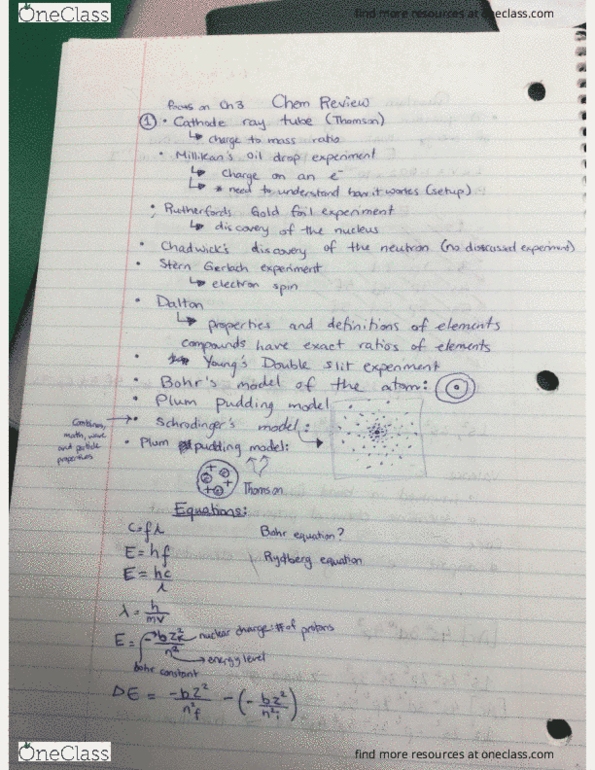 OneClass
find more resources at oneclass.com
Focus on Ch3 Chem Review
① • Cathode ray tube (Thomson)
↳ charge to mass ratio
• Millikan's oil drop experiment
↳ charge on an e⁻
↳ * need to understand how it works (setup)
• Rutherfords Gold foil experiment
↳ discovery of the nucleus
• Chadwick's discovery of the neutron (no discussed experiment)
• Stern Gerlach experiment
↳ electron spin
• Dalton
↳ properties and definitions of elements
compounds have exact ratios of elements
• Young's Double slit experiment
• Bohr's model of the atom:
• Plum pudding model
Combines math, wave and particle properties → • Schrodinger's model:
• Plum pudding model:
Thomson
Equations:
c=fλ
Bohr equation?
E=hf
Rydberg equation
E=hc/λ
λ=h/mv
E=-bZ²/n² nuclear charge: # of protons
energy level
bohr constant
DE = -bZ²/n²f - (-bZ²/n²i)
OneClass
find more resources at oneclass.com